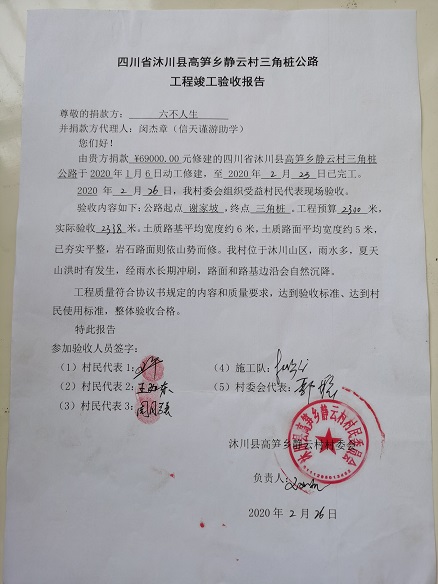 四川省沐川县高笋乡静云村三角桩公路
工程竣工验收报告
尊敬的捐款方： 六不人生
并捐款方代理人：闵杰章（信天谨游助学）
您们好！
由贵方捐款 ¥69000.00 元修建的四川省沐川县高笋乡静云村三角桩
公路于 2020 年 1 月 6 日动工修建，至 2020 年 2 月 25 日已完工。
2020 年 2 月 26 日，我村委会组织受益村民代表现场验收。
验收内容如下：公路起点 谢家坡，终点 三角桩。工程预算 2300 米，
实际验收 2338 米。土质路基平均宽度约 6 米，土质路面平均宽度约 5 米，
已夯实平整，岩石路面则依山势而修。我村位于沐川山区，雨水多，夏天
山洪时有发生，经雨水长期冲刷，路面和路基边沿会自然沉降。
工程质量符合协议书规定的内容和质量要求，达到验收标准、达到村
民使用标准，整体验收合格。
特此报告
参加验收人员签字：
（1）村民代表 1： （4）施工队：
（2）村民代表 2： （5）村委会代表：
（3）村民代表 3：
沐川县高笋乡静云村村民委员会
沐川县高笋乡静云村村委会
负责人：
2020 年 2 月 26 日